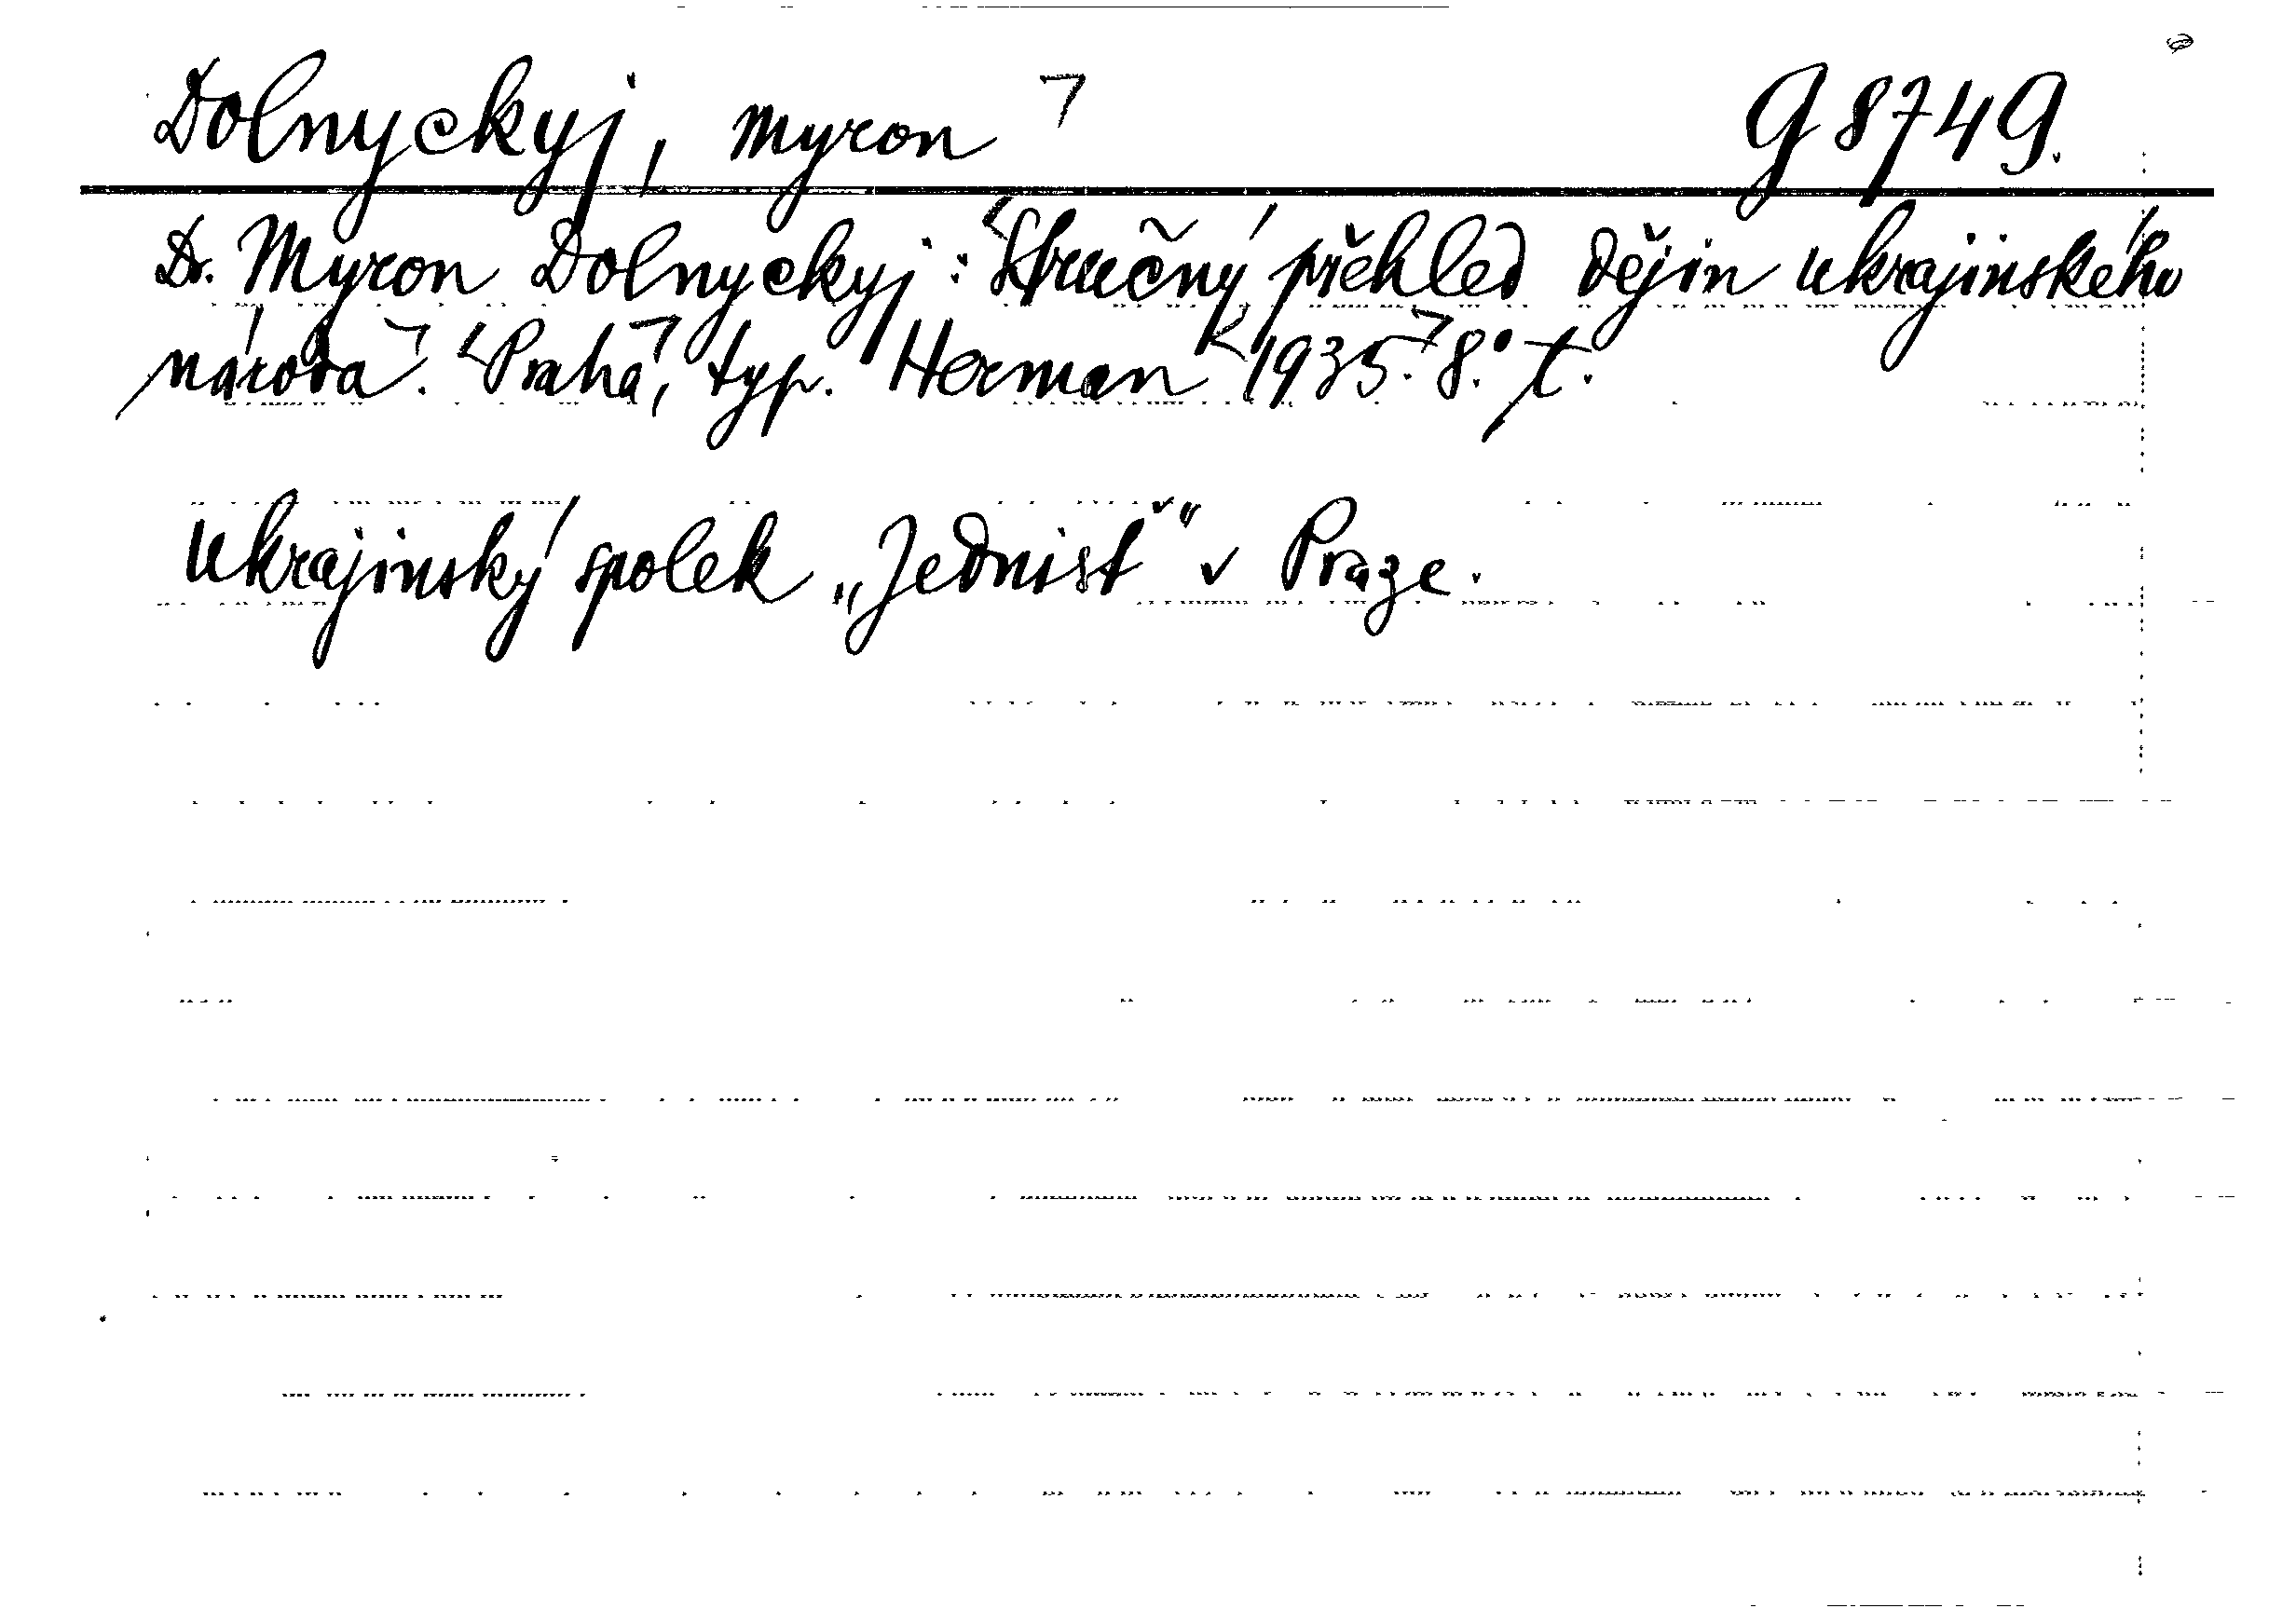 Dolnyckyj, Myron G 8749.
Dr. Myron Dolnyckyj: Stručný přehled dějin ukrajinského
národa. Praha, typ. Herman 1935. 8.° t.
Ukrajinský spolek „Jednisť“ v Praze.